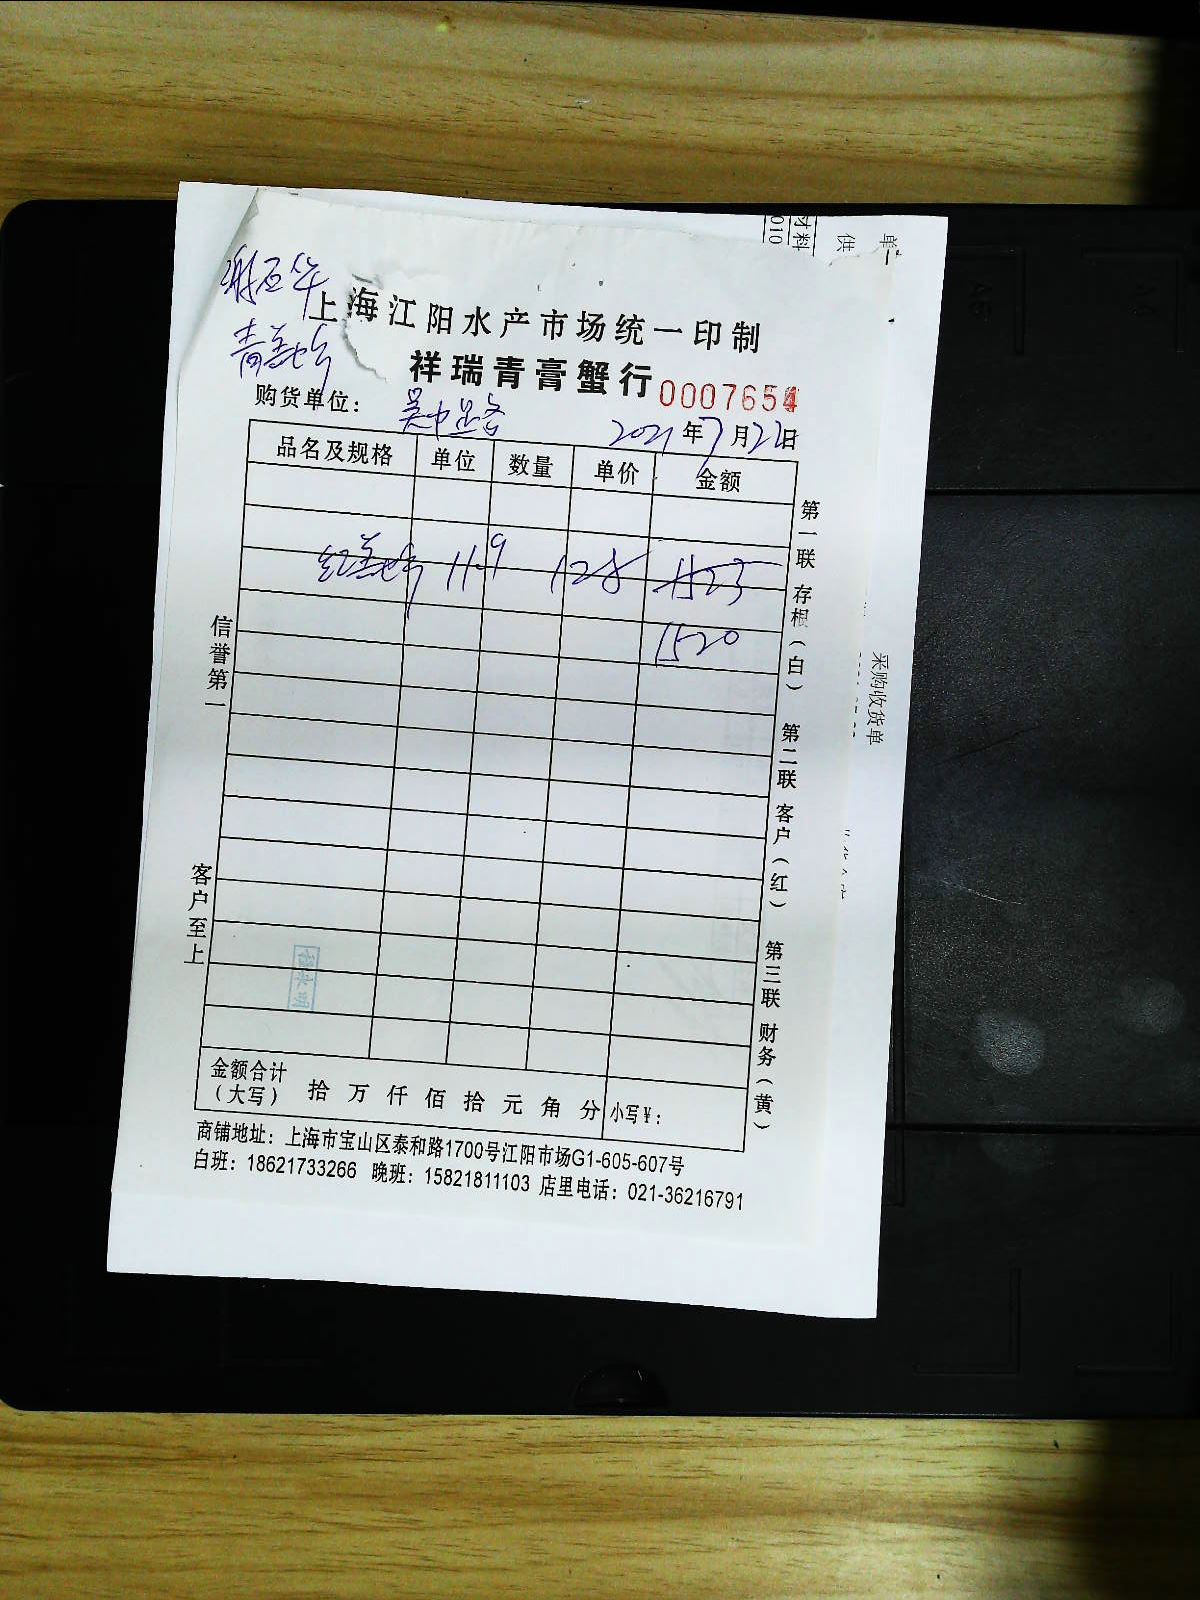 上海江阳水产市场统一印制
祥瑞青膏蟹行 0007654
购货单位：
2021年7月22日
品名及规格 单位 数量 单价 金额
11.9 128 1523
1520
信誉第一
客户至上
第一联 存根（白） 第二联 客户（红） 第三联 财务（黄）
金额合计（大写） 拾 万 仟 佰 拾 元 角 分 小写¥：
商铺地址：上海市宝山区泰和路1700号江阳市场G1-605-607号
白班：18621733266 晚班：15821811103 店里电话：021-36216791
材料
010
供
单
采购收货单